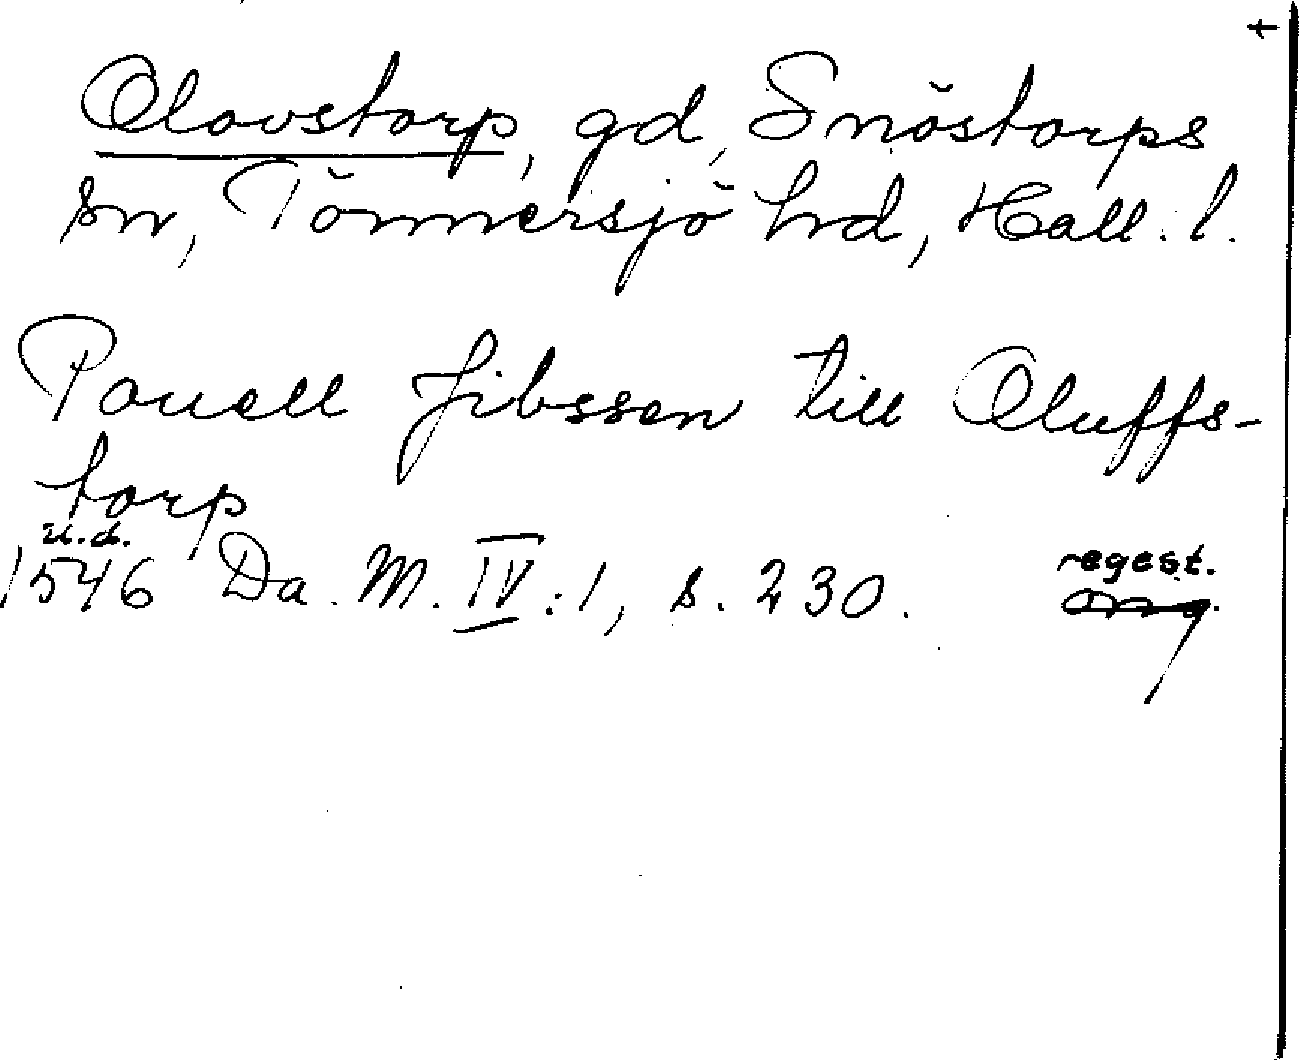 †
Olovstorp, gd, Snöstorps
sn, Tönnersjö hd, Hall. l.
Pouell Jibssen till Oluffs-
torp
u.d.
1546 Da. M. IV:1, s. 230.
regest.